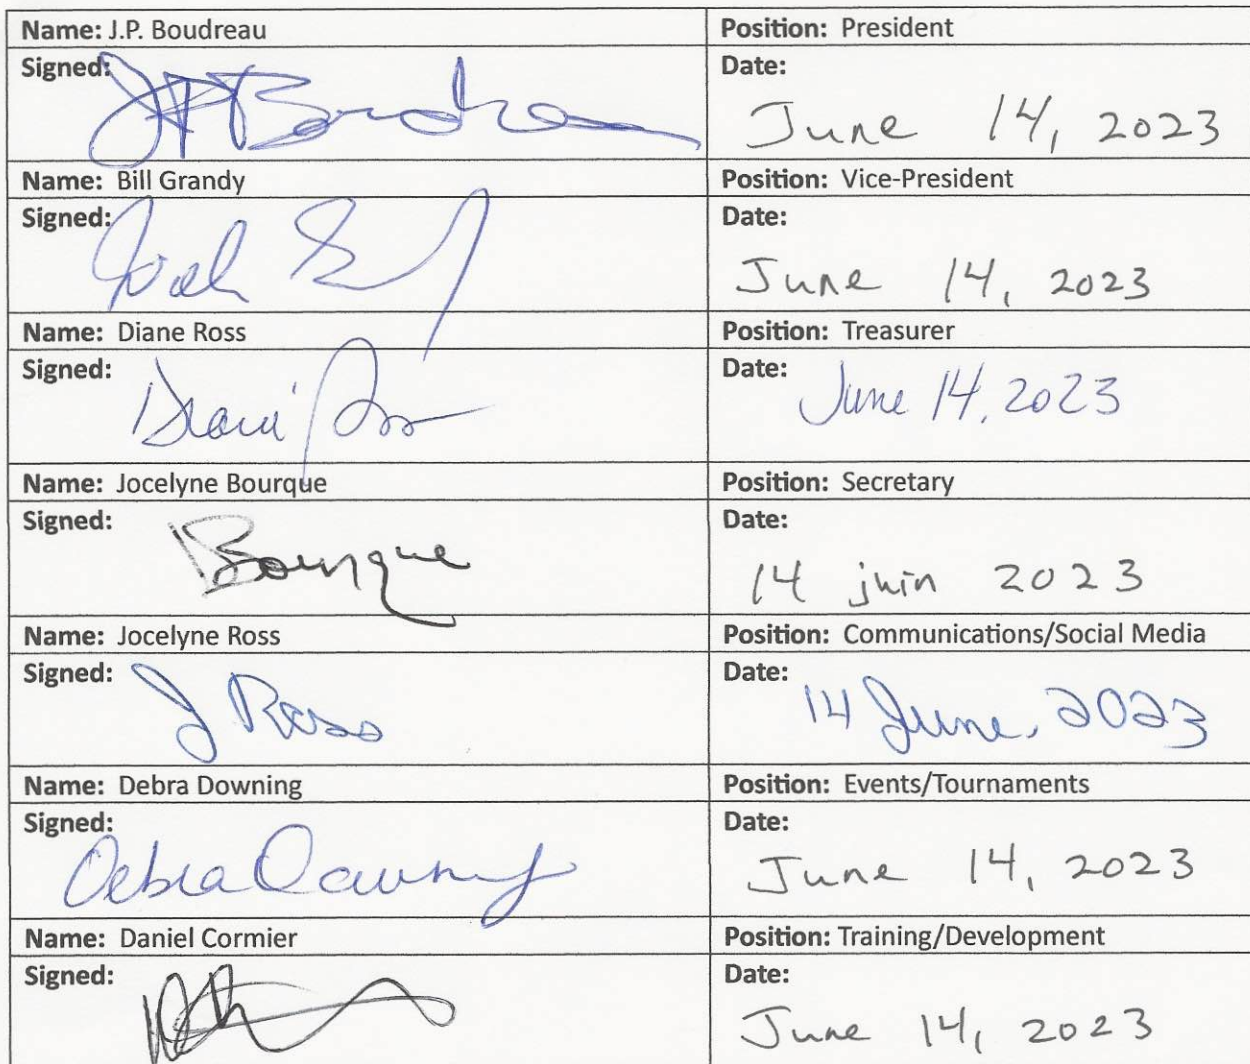 Name: J.P. Boudreau Position: President
Signed: JP Boudreau Date: June 14, 2023
Name: Bill Grandy Position: Vice-President
Signed: Date: June 14, 2023
Name: Diane Ross Position: Treasurer
Signed: Diane Ross Date: June 14, 2023
Name: Jocelyne Bourque Position: Secretary
Signed: Bourque Date: 14 juin 2023
Name: Jocelyne Ross Position: Communications/Social Media
Signed: J Ross Date: 14 June, 2023
Name: Debra Downing Position: Events/Tournaments
Signed: Debra Downing Date: June 14, 2023
Name: Daniel Cormier Position: Training/Development
Signed: Date: June 14, 2023